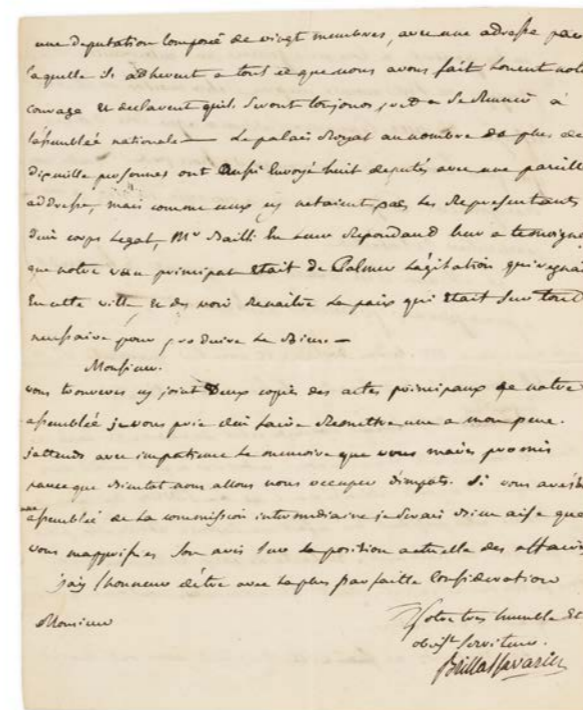 une deputation composée de vingt membres, avec une adresse par
laquelle ils adherent a tout ce que nous avons fait louent notre
courage et declarent quils seront toujours prets a se réunir à
lassemblée nationale — Le palais Royal au nombre de plus de
dix mille personnes ont aussi Envoyé huit deputés avec une pareille
addresse, mais comme ceux cy netaient pas les Representants
d'un corps Legal, Mr Bailli En leur Repondand leur a temoigné
que notre vœu principal Etait de Calmer Lagitation qui regnait
En cette ville et dy voir Renaitre La paix qui Etait sur tout
necessaire pour produire Le Bien —
Monsieur.
vous trouveres cy joint Deux copies des actes principaux de notre
assemblée je vous prie d'en faire Remettre une a mon pere.
jattends avec impatience Le memoire que vous mavés promis
parceque Bientot nous allons nous occuper dimpots. Si vous aviés
une
assemblée de La commission intermediaire je serais bien aise que
vous mapprissies Son avis sur La position actuelle des affaires
jay l'honneur dêtre avec La plus parfaite Consideration
Monsieur
Votre tres humble Et
obeist Serviteur.
Brillat Savarin